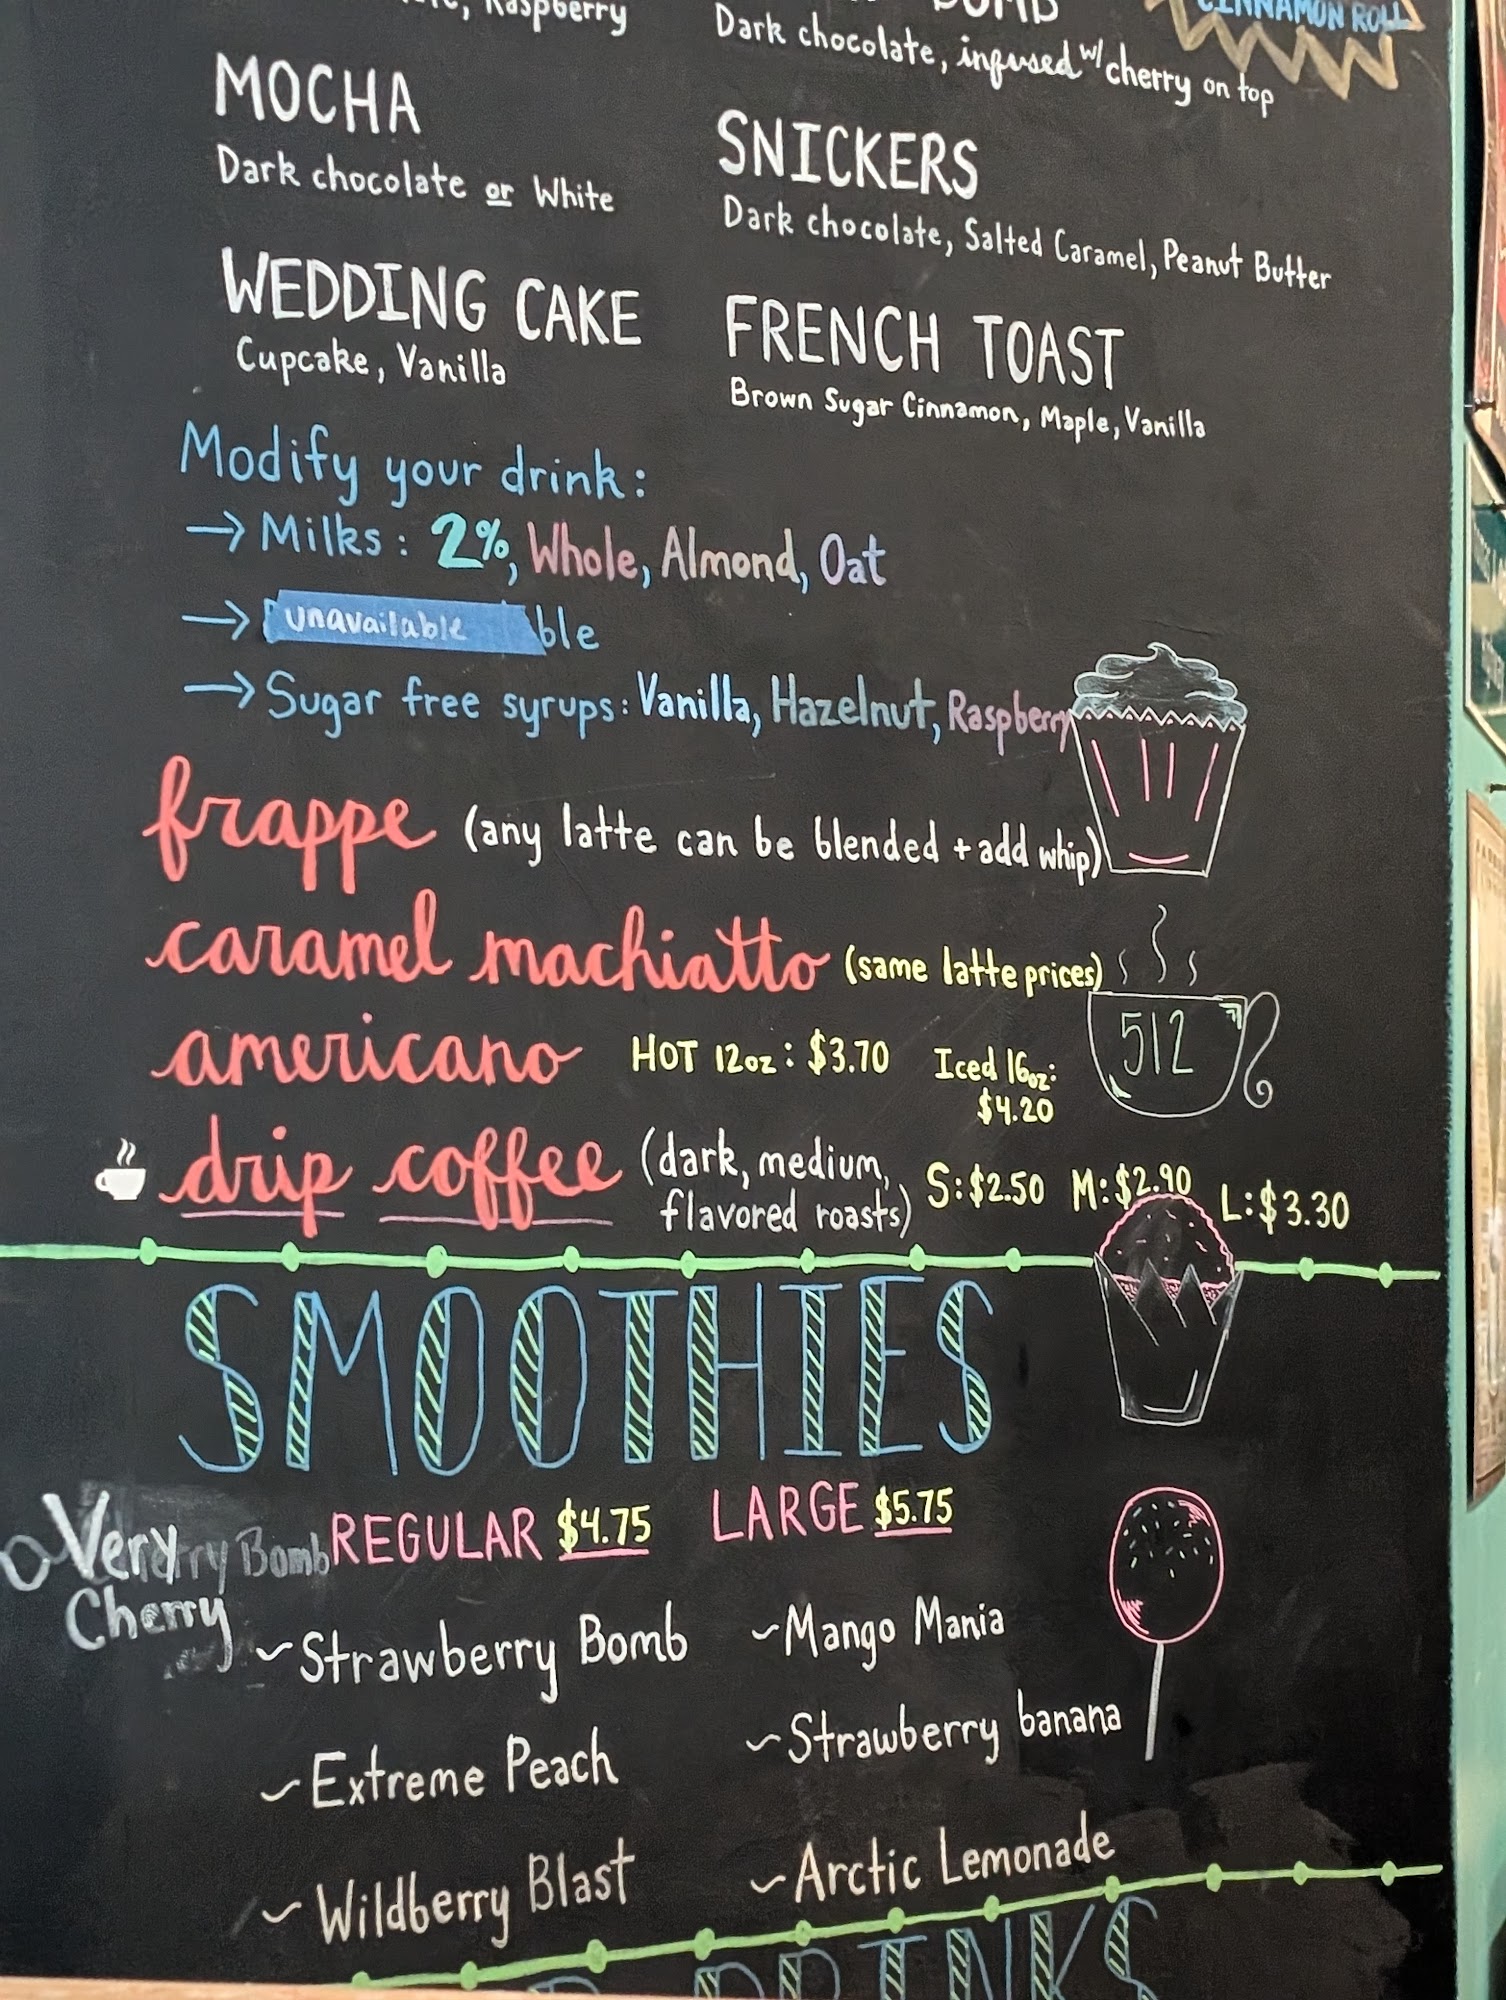 Raspberry
Dark chocolate, infused w/ cherry on top
CINNAMON ROLL
MOCHA
Dark chocolate or White
SNICKERS
Dark chocolate, Salted Caramel, Peanut Butter
WEDDING CAKE
Cupcake, Vanilla
FRENCH TOAST
Brown Sugar Cinnamon, Maple, Vanilla
Modify your drink:
→ Milks: 2%, Whole, Almond, Oat
→ unavailable ble
→ Sugar free syrups: Vanilla, Hazelnut, Raspberry
frappe (any latte can be blended + add whip)
caramel machiatto (same latte prices)
512
americano HOT 12oz: $3.70 Iced 16oz:
$4.20
drip coffee (dark, medium,
flavored roasts) S: $2.50 M: $2.90 L: $3.30
SMOOTHIES
REGULAR $4.75 LARGE $5.75
Very
Cherry
Bomb
~Strawberry Bomb
~Mango Mania
~Extreme Peach
~Strawberry banana
~Wildberry Blast
~Arctic Lemonade
DRINKS